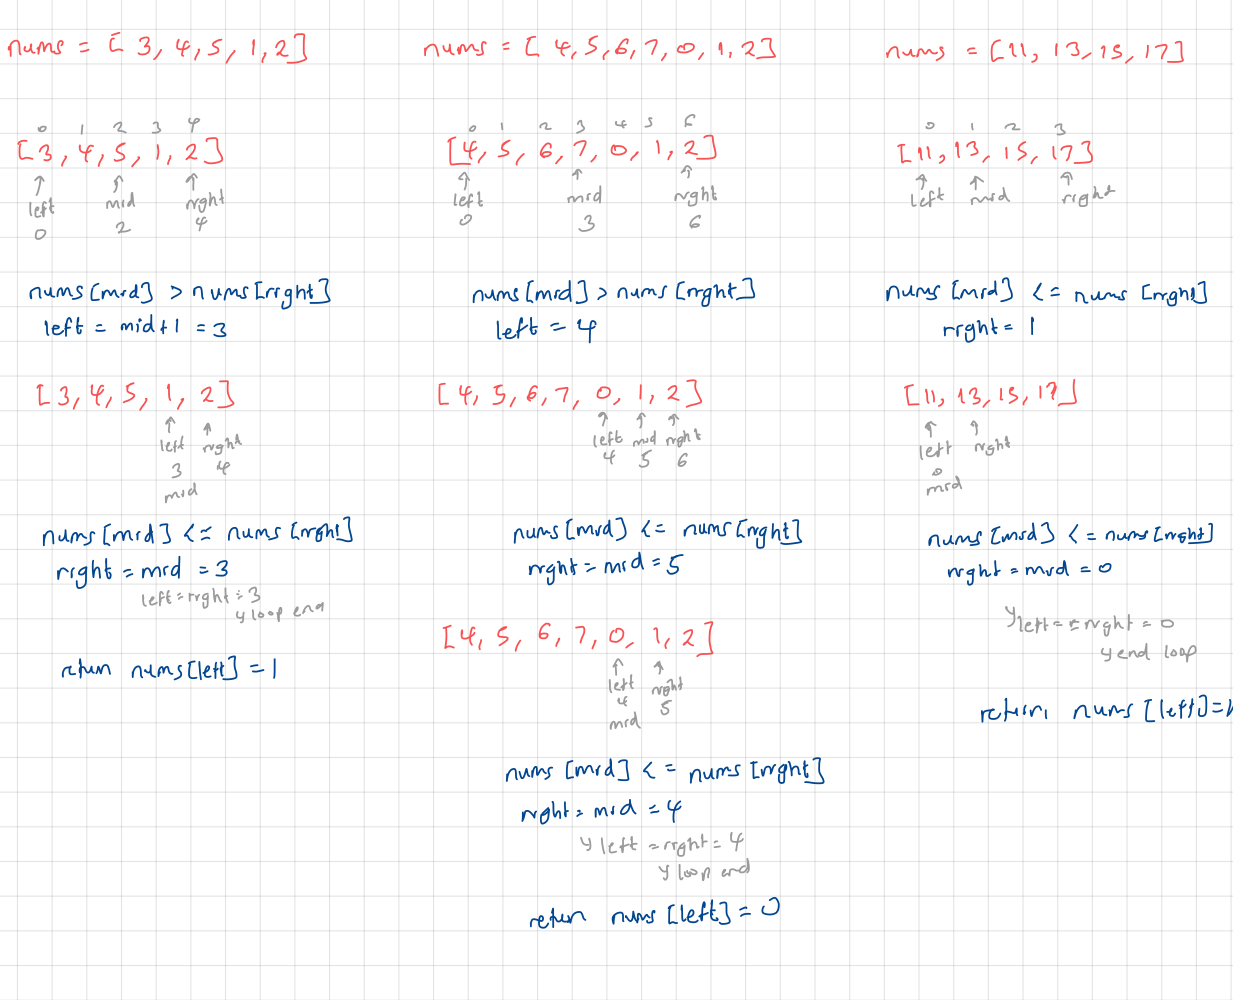 nums = [ 3, 4, 5, 1, 2]
0 1 2 3 4
[3, 4, 5, 1, 2]
left mid right
0 2 4
nums [mid] > nums [right]
left = mid+1 = 3
[3, 4, 5, 1, 2]
left right
3 4
mid
nums [mid] <= nums [right]
right = mid = 3
left = right = 3
loop end
return nums [left] = 1
nums = [ 4, 5, 6, 7, 0, 1, 2]
0 1 2 3 4 5 6
[4, 5, 6, 7, 0, 1, 2]
left mid right
0 3 6
nums [mid] > nums [right]
left = 4
[4, 5, 6, 7, 0, 1, 2]
left mid right
4 5 6
nums [mid] <= nums [right]
right = mid = 5
[4, 5, 6, 7, 0, 1, 2]
left right
4 5
mid
nums [mid] <= nums [right]
right = mid = 4
left = right = 4
loop end
return nums [left] = 0
nums = [11, 13, 15, 17]
0 1 2 3
[11, 13, 15, 17]
left mid right
nums [mid] <= nums [right]
right = 1
[11, 13, 15, 17]
left right
0
mid
nums [mid] <= nums [right]
right = mid = 0
left == right = 0
end loop
return nums [left] =